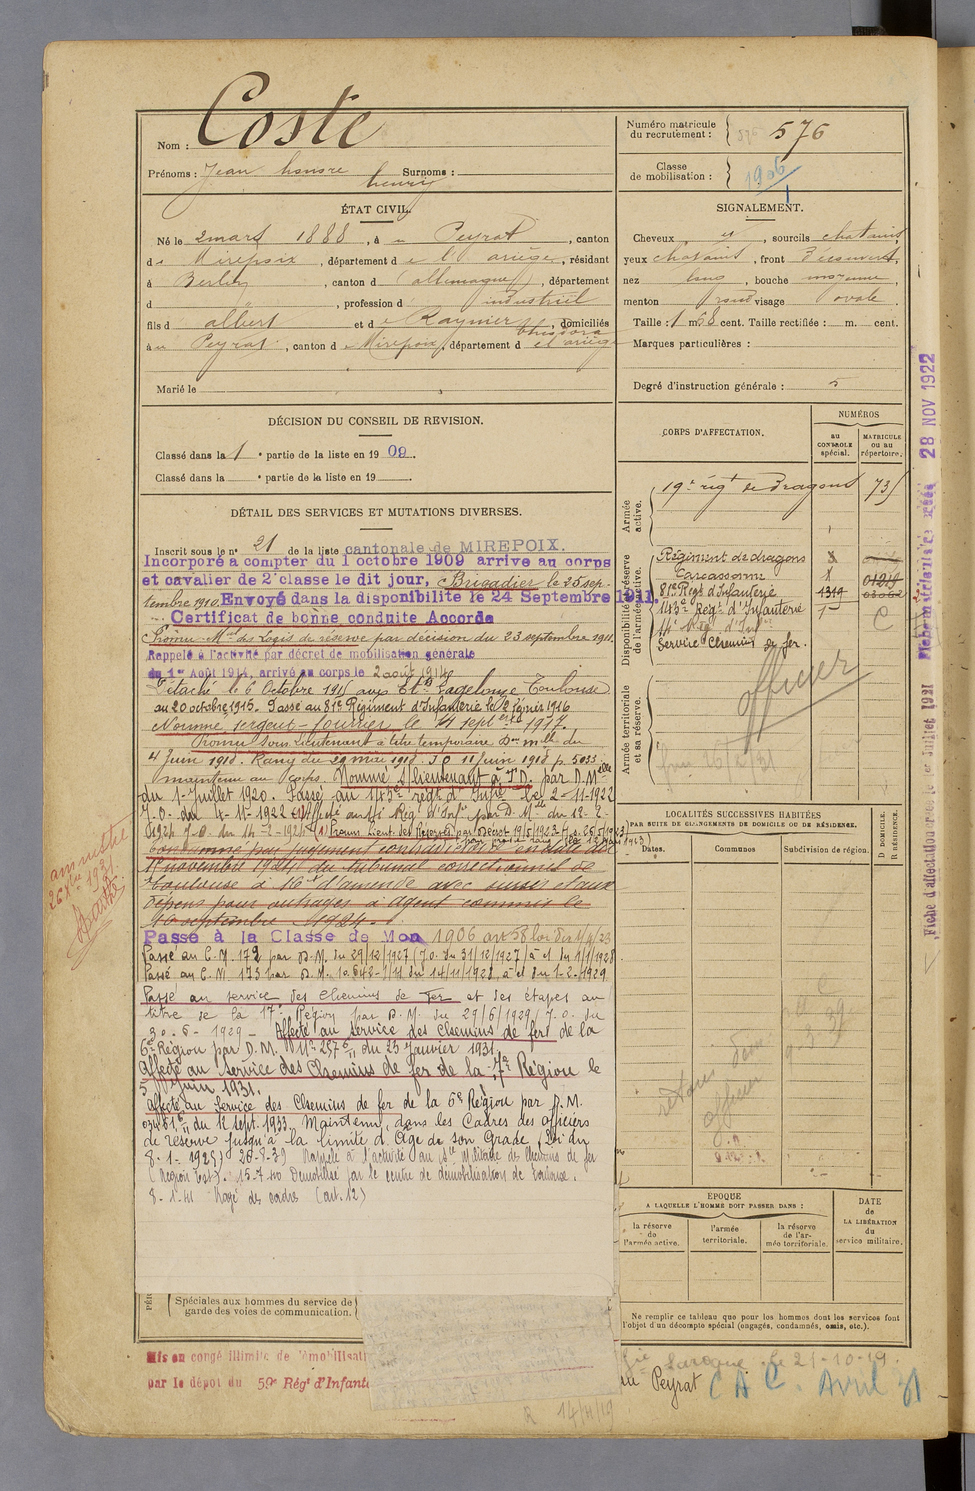 Nom : Coste
Prénoms : Jean honore Surnoms :
henry
ÉTAT CIVIL.
Né le 2 mars 1888, à Peyrat, canton
de Mirepoix, département de l'ariège, résidant
à Berlin, canton d (allemagne), département
d , profession d industriel
fils d albert et de Raynier , domiciliés
à Peyrat, canton de Mirepoix, département d el ariège
Marié le
DÉCISION DU CONSEIL DE REVISION.
Classé dans la 1 e partie de la liste en 1909.
Classé dans la e partie de la liste en 19 .
DÉTAIL DES SERVICES ET MUTATIONS DIVERSES.
Inscrit sous le n° 21 de la liste cantonale de MIREPOIX.
Incorporé a compter du 1 octobre 1909 arrive au corps
et cavalier de 2e classe le dit jour, Brigadier le 25 sep-
tembre 1910. Envoyé dans la disponibilite le 24 Septembre 1911.
Certificat de bonne conduite Accorde
Promu Mal des Logis de réserve par décision du 23 septembre 1911.
Rappelé à l'activité par décret de mobilisation générale
du 1er Août 1914, arrivé au corps le 2 août 1914
Détaché le 6 Octobre 1915 aux Toulouse
au 20 octobre 1915. Passé au 81e Régiment d'Infanterie le 12 février 1916
Nommé sergent-fourrier le 4 septembre 1917.
Promu sous Lieutenant à titre temporaire Don mlle du
4 Juin 1918. Rang du 29 mai 1918. J.O 11 Juin 1918 p. 5033
maintenu au corps. Nommé S/lieutenant à T.D. par D.M
du 1er Juillet 1920. Passé au 143e régt d'Infie le 2-11-1922
J.O. du 4-11-1922 Affecté au 14 Rég. d'Infie par D.M. du 12-2-
1924 J.O. du 14-2-1924 (1) Promu Lieut. de Réserve par Décret 19/5/1923
Condamné par jugement contradictoire en date du
1er novembre 1924 du tribunal correctionnel de
Toulouse à 16 f d'amende avec sursis et aux
dépens pour outrages à agent commis le
10 septembre 1924.
Passé à la Classe de Mon 1906 art 58 loi du 1/4/23
Passé au C.M. 172 par D.M. du 29/12/1927 (J.O. du 31/12/1927) à ct du 1/1/1928
Passé au C.M. 173 par D.M. 10.642-1/11 du 14/11/1928, à ct du 1-2-1929
Passé au service des Chemins de Fer et des étapes au
titre de la 17e Région par D.M. du 29/6/1929 J.O. du
30-6-1929 - Affecté au service des chemins de fer de la
6e Région par D.M. N° 2576 du 23 Janvier 1931.
Affecté au Service des Chemins de fer de la 17e Région le
5 Juin 1931.
Affecté au Service des Chemins de fer de la 6e Région par D.M.
du 12 sept. 1933. Maintenu dans les Cadres des officiers
de réserve jusqu'à la limite d'Age de son Grade (Loi du
8-1-1925) 26-8-39 Rappelé à l'activité au Sce Militaire des Chemins de fer
(Région Est). 15-7-40 Démobilisé par le centre de démobilisation de Toulouse.
8-1-41 Rayé des cadres (art. 12)
Spéciales aux hommes du service de
garde des voies de communication.
Mis en congé illimité de démobilisati
par le dépot du 59e Régt d'Infante
amnistié
Numéro matricule
du recrutement : 576
Classe
de mobilisation : 1906
SIGNALEMENT.
Cheveux et , sourcils chatains
yeux chatains , front Découvert,
nez long , bouche moyenne
menton rond visage ovale .
Taille : 1 m 68 cent. Taille rectifiée : m. cent.
Marques particulières :
Degré d'instruction générale : 3
CORPS D'AFFECTATION.
NUMÉROS
au
CONTRÔLE
spécial.
MATRICULE
ou au
répertoire.
Armée
active.
19e régt de Dragons 731
Disponibilité et réserve
de l'armée active.
Régiment de dragons
Carcassonne
81e Régt d'Infanterie 1319
143e Régt d'Infanterie C
14e Rég. d'Inf
Service Chemins de fer.
officier
Armée territoriale
et sa réserve.
LOCALITÉS SUCCESSIVES HABITÉES
PAR SUITE DE CHANGEMENTS DE DOMICILE OU DE RÉSIDENCE.
Dates.
Communes
Subdivision de région.
D DOMICILE.
R RÉSIDENCE.
officier
ÉPOQUE
A LAQUELLE L'HOMME DOIT PASSER DANS :
la réserve
de
l'armée active.
l'armée
territoriale.
la réserve
de l'ar-
mée territoriale.
DATE
de
LA LIBÉRATION
du
service militaire.
Ne remplir ce tableau que pour les hommes dont les services font
l'objet d'un décompte spécial (engagés, condamnés, omis, etc.).
Laroque le 21-10-19.
au Peyrat C A C. Avril 31
R 14/11/19
Fiche matricule créée 28 NOV 1922
Fiche d'affectation créée le 1er Juillet 1921